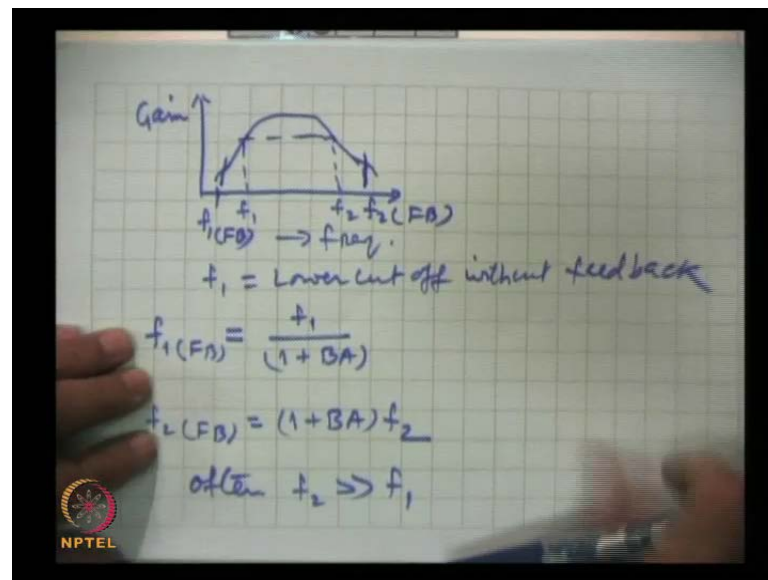 Gain
f₁(FB) f₁ f₂ f₂(FB)
→ freq.
f₁ = Lower cut off without feedback
f₁(FB) = f₁ / (1 + BA)
f₂(FB) = (1 + BA) f₂
often f₂ >> f₁
NPTEL